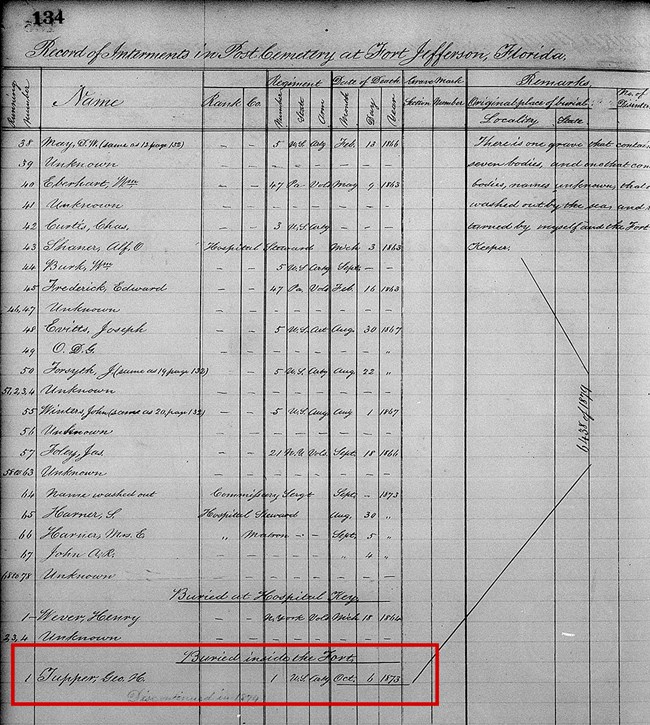 134
Record of Interments in Post Cemetery at Fort Jefferson, Florida.
Running Number Name Rank Co. Regiment Number State Arm Date of Death Month Day Year Grave Mark Section Number Remarks. Original place of burial. Locality State No. of
38 May, J. W. (same as 12 page 132) — — 5 U.S. Arty Feb. 13 1866 There is one grave that contai
39 Unknown — — — — — — — — seven bodies and one that con
40 Eberhart, Wm — — 47 Pa Vols May 9 1863 bodies, names unknown, that
41 Unknown — — — — — — — — washed out by the sea and
42 Curtis, Chas. — — 3 U.S. Arty — — — by myself and the Fort
43 Shaner, Alf. O Hospital Steward Mch 3 1863 Keeper.
44 Burk, Wm — — 5 U.S. Arty Sept. — —
45 Frederick, Edward — — 47 Pa. Vols Feb. 16 1863
46,47 Unknown — — — — — — — —
48 Evitts, Joseph — — 5 U.S. Art Aug. 30 1867
49 O. D. G. — — — — — — — "
50 Forsyth, J (same as 19, page 132) — — 5 U.S. Arty Aug 22 "
51,2,3,4 Unknown — — — — — — — —
55 Winters, John (same as 20, page 132) — — 5 U.S. Arty Aug 1 1867
56 Unknown — — — — — — — —
57 Foley, Jas — — 21 Vols. Sept. 18 1864
58 to 63 Unknown — — — — — — — —
64 Name washed out Commissary Sergt Sept. — 1873
65 Harner, S. Hospital Steward Aug. 30 "
66 Harner, Mrs. E " Matron — — Sept. 5 "
67 John A. R. — — — — — " 4 "
68 to 78 Unknown — — — — — — — —
Buried at Hospital Key.
1 — Wever, Henry N. York Vols Mch 18 1864
2,3,4 Unknown — — — — — — — —
Buried inside the Fort.
1 Tupper, Geo. H. 1 U.S. Arty Oct. 6 1873
Discontinued in 1879
6438 of 1879